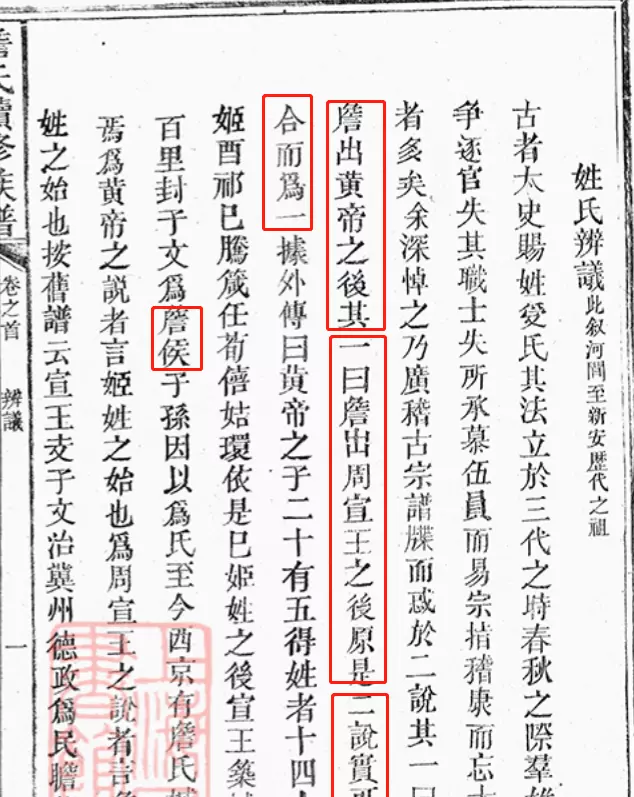 姓氏辨議此叙河間至新安歷代之祖
古者太史賜姓受氏其法立於三代之時春秋之際羣雄
爭逐官失其職士失所承慕伍員而易宗掯稽康而忘
者多矣余深悼之乃廣稽古宗譜牒而惑於二說其一曰
詹出黃帝之後其一曰詹出周宣王之後原是二說實
合而爲一據外傳曰黃帝之子二十有五得姓者十四
姬酉祁巳滕箴任荀僖姞環依是巳姬姓之後宣王築
百里封于文爲詹侯子孫因以爲氏至今西京有詹氏
焉爲黃帝之說者言姬姓之始也爲周宣王之說者言
姓之始也按舊譜云宣王支子文治冀州德政爲民瞻
詹氏續修族譜
卷之首
辨議
一